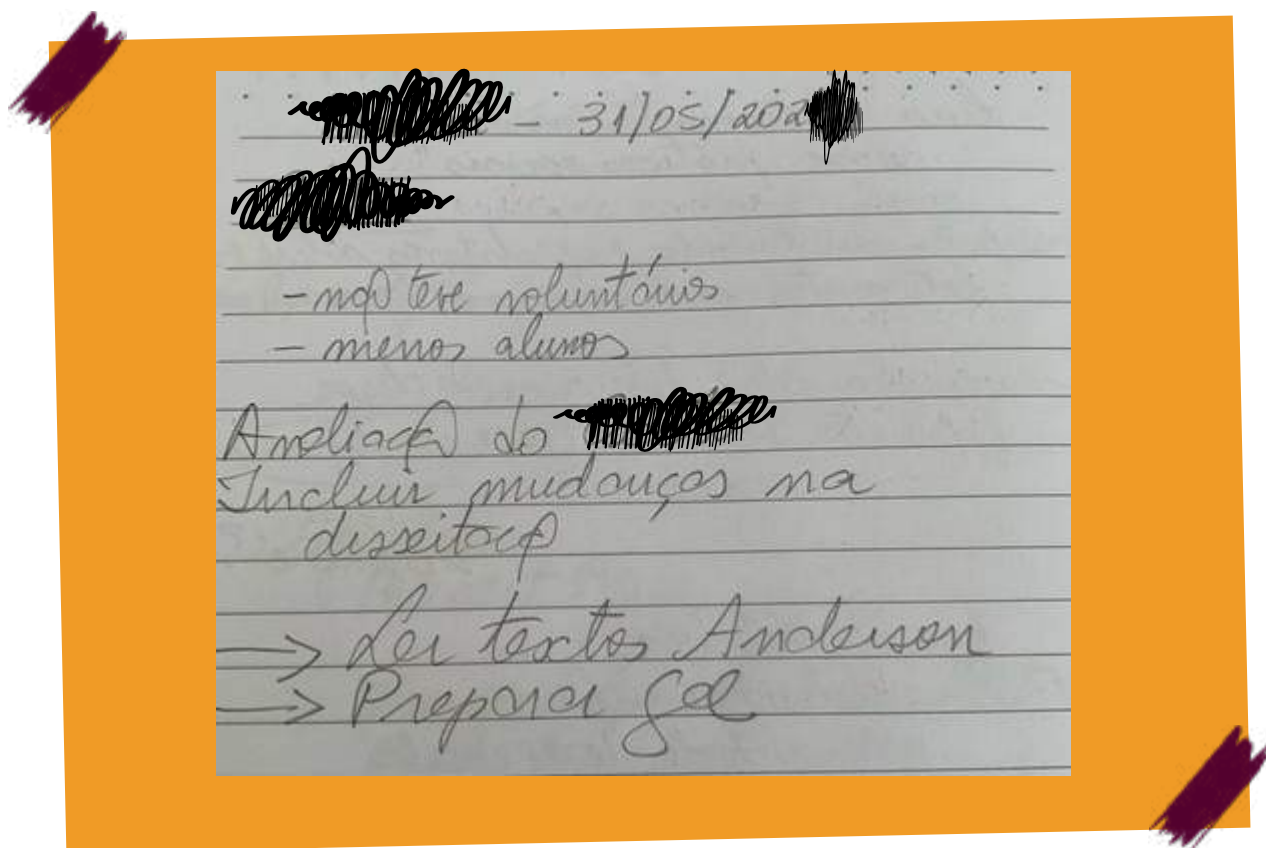 - 31/05/202
- não teve voluntários
- menos alunos
Avaliação do
Incluir mudanças na
dissertação
→ Ler textos Anderson
→ Preparar